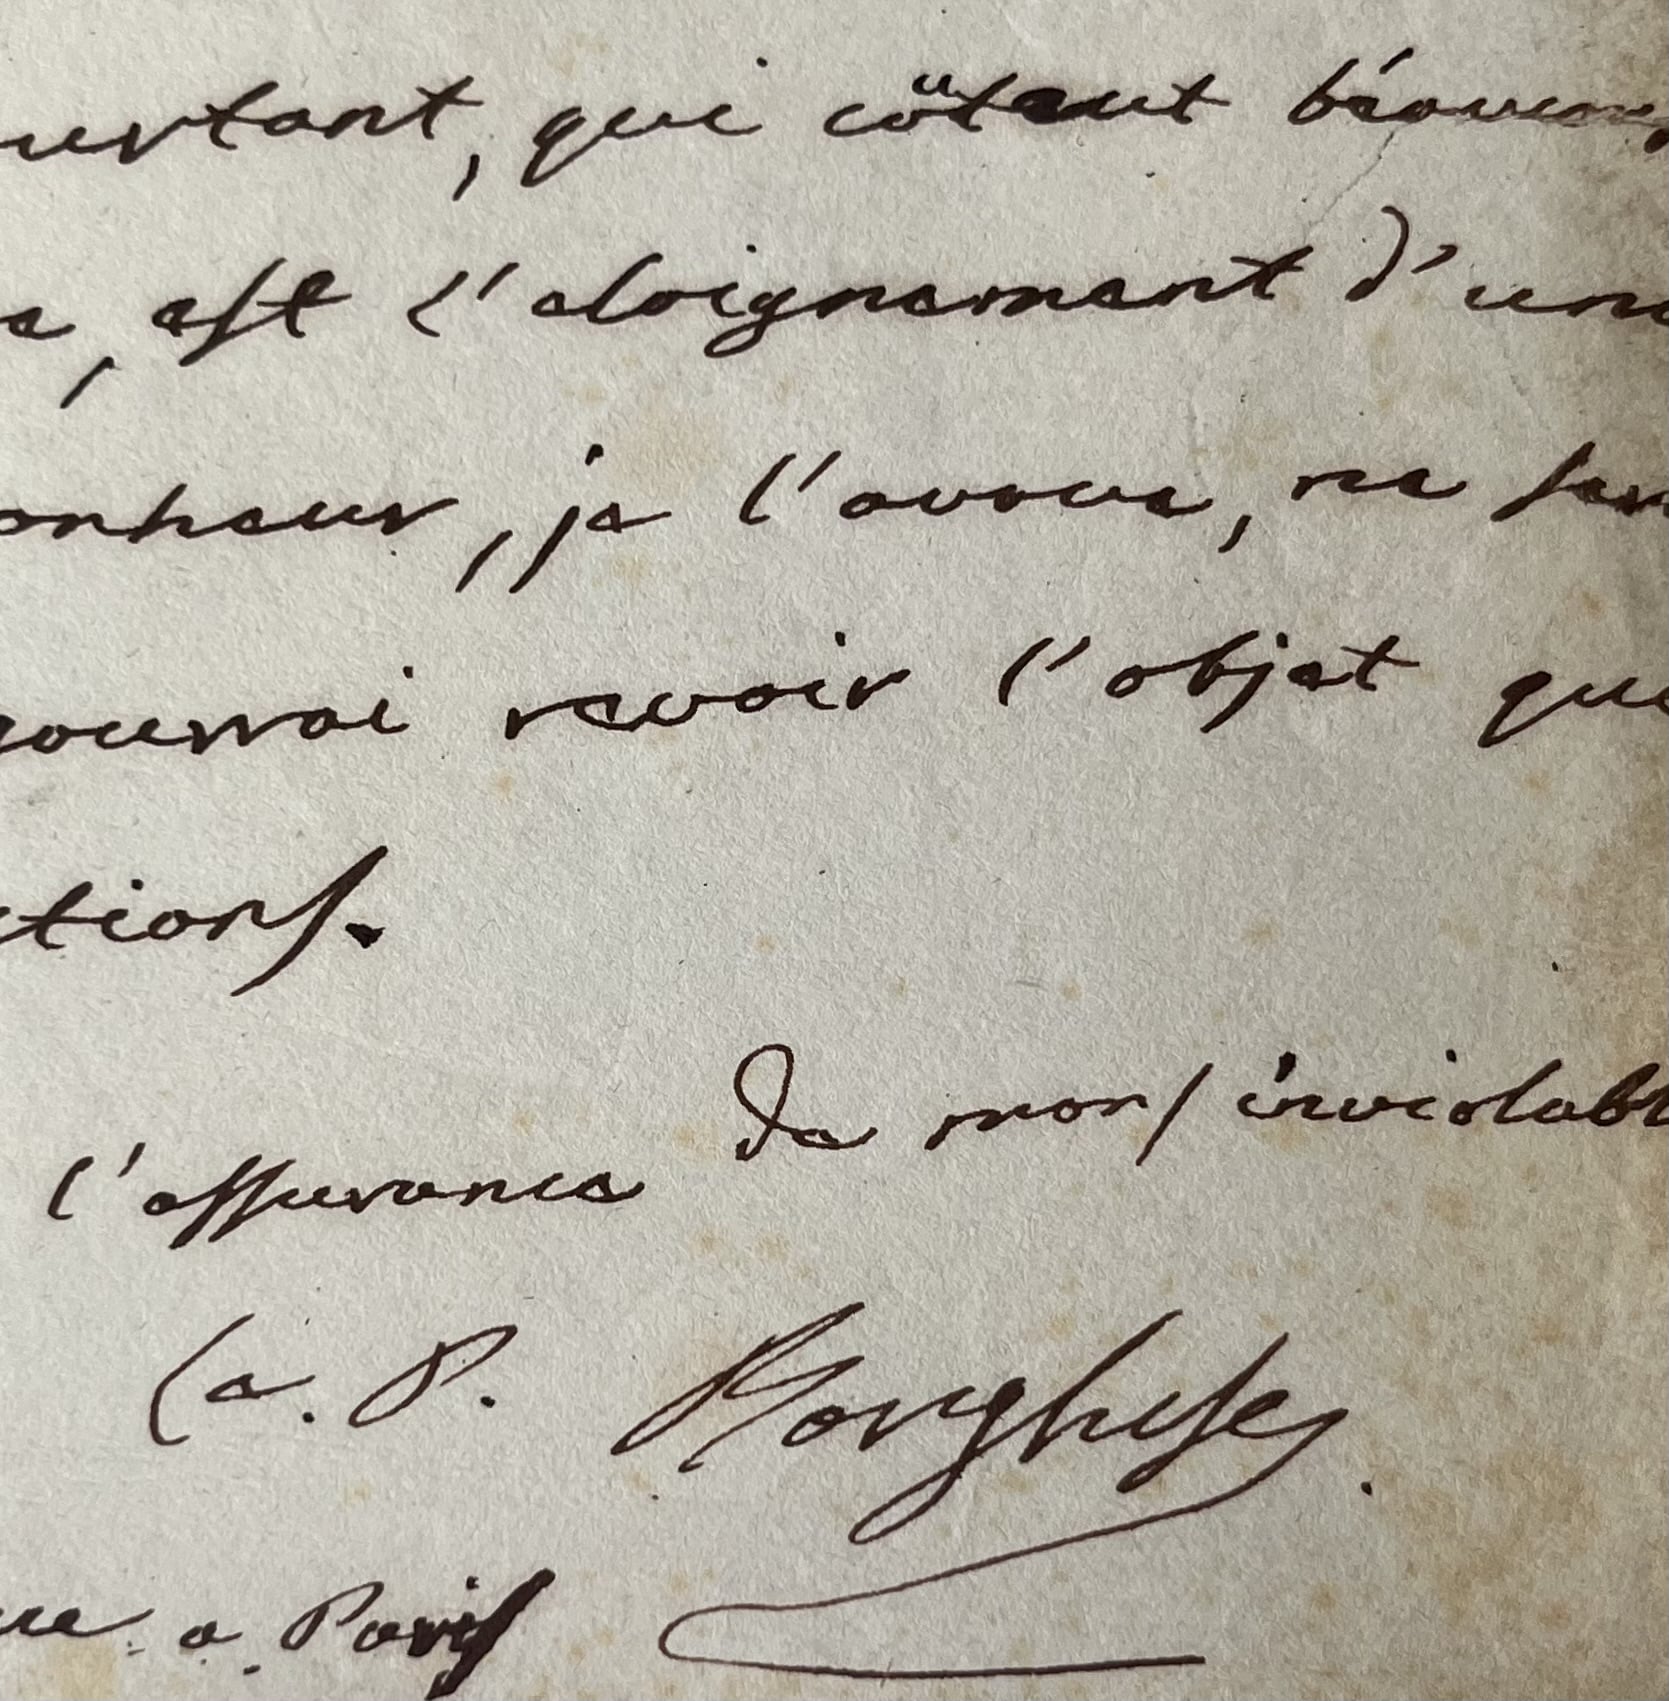 urtant, qui coûtent
e, est l'eloignement d'une
onheur, je l'avoue, ne
pourrai revoir l'objet que
ctions.
l'assurance de mon inviolabl
Le. P. Borghese.
a Paris